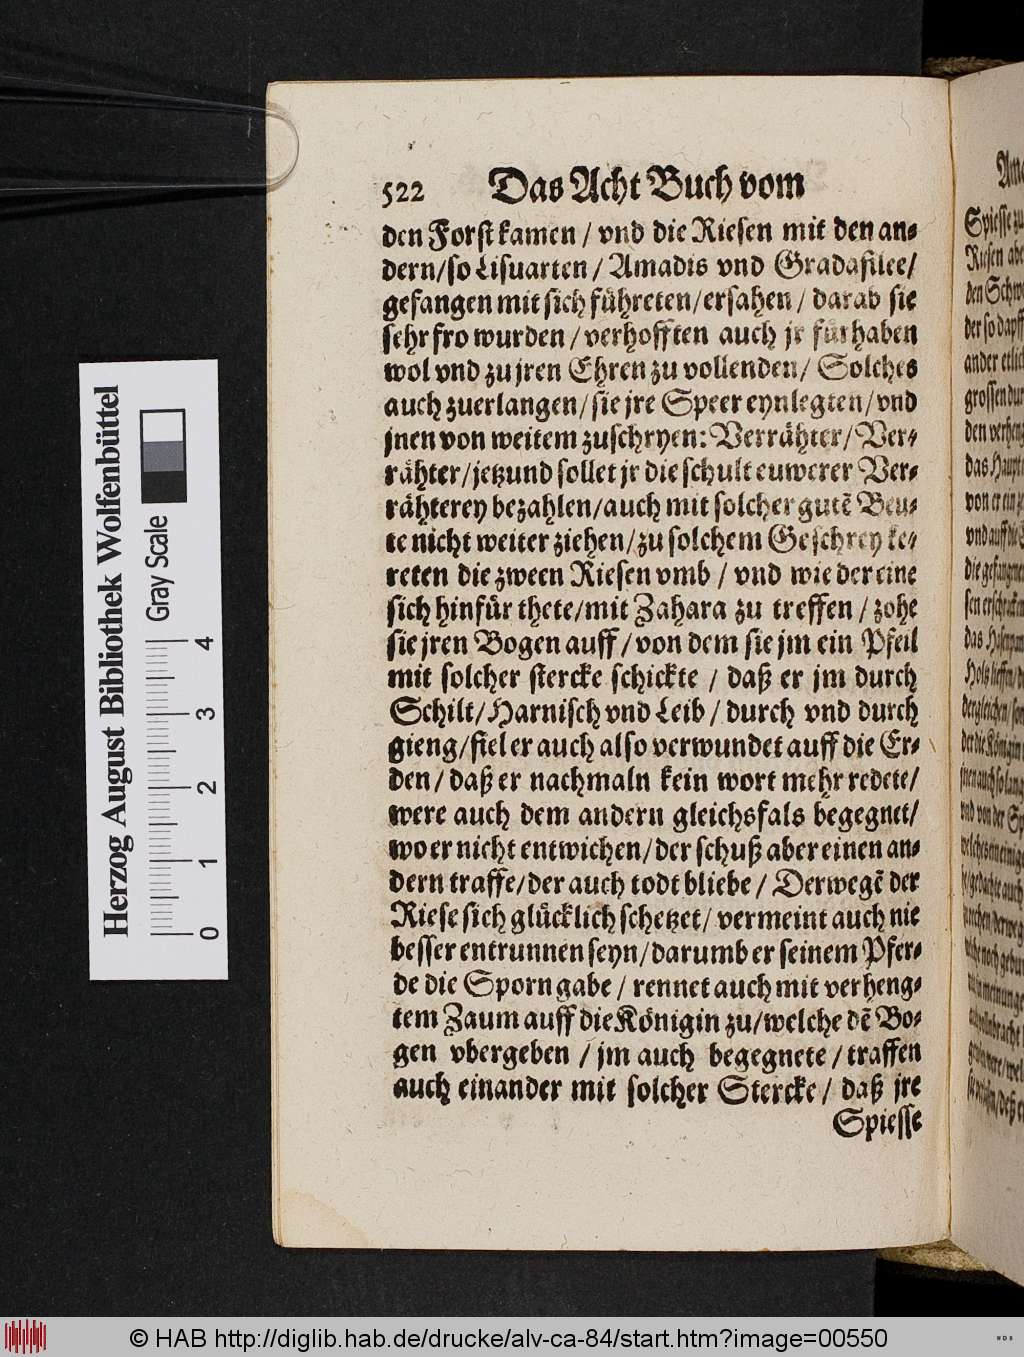 522 Das Acht Buch vom
den Forst kamen / vnd die Riesen mit den an⸗
dern/so Lisuarten / Amadis vnd Gradafilee/
gefangen mit sich führeten/ersahen / darab sie
sehr fro wurden / verhofften auch jr fürhaben
wol vnd zu jren Ehren zu vollenden/ Solches
auch zuerlangen/sie jre Speer eynlegten/vnd
jnen von weitem zuschryen: Verrähter/ Ver⸗
rähter/jetzund sollet jr die schult euwerer Ver⸗
rähterey bezahlen/auch mit solcher gutē Beu⸗
te nicht weiter ziehen/zu solchem Geschrey ke⸗
reten die zween Riesen vmb / vnd wie der eine
sich hinfür thete/mit Zahara zu treffen / zohe
sie jren Bogen auff / von dem sie jm ein Pfeil
mit solcher stercke schickte / daß er jm durch
Schilt/Harnisch vnd Leib / durch vnd durch
gieng/fiel er auch also verwundet auff die Er⸗
den / daß er nachmaln kein wort mehr redete/
were auch dem andern gleichsfals begegnet/
wo er nicht entwichen/der schuß aber einen an⸗
dern traffe/der auch todt bliebe / Derwegē der
Riese sich glücklich schetzet/ vermeint auch nie
besser entrunnen seyn/darumb er seinem Pfer⸗
de die Sporn gabe / rennet auch mit verheng⸗
tem Zaum auff die Königin zu/welche dē Bo⸗
gen vbergeben / jm auch begegnete / traffen
auch einander mit solcher Stercke / daß jre
Spiesse
Herzog August Bibliothek Wolfenbüttel
Gray Scale
0 1 2 3 4
© HAB http://diglib.hab.de/drucke/alv-ca-84/start.htm?image=00550